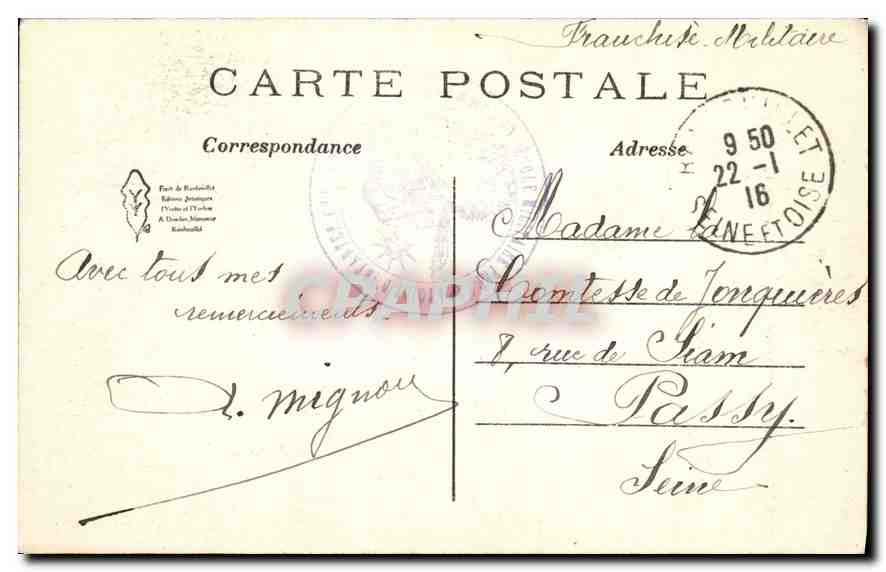 Franchise Militaire
CARTE POSTALE
Correspondance
Adresse
9 50
22 -1
16
SEINE ET OISE
Forêt de Rambouillet
Editions Artistiques
l'Yvette et l'Yveline
Rambouillet
Avec tous mes
remerciements.
Mignon
Madame La
Comtesse de Jonquières
8, rue de Siam
Passy.
Seine
CPAPHIL